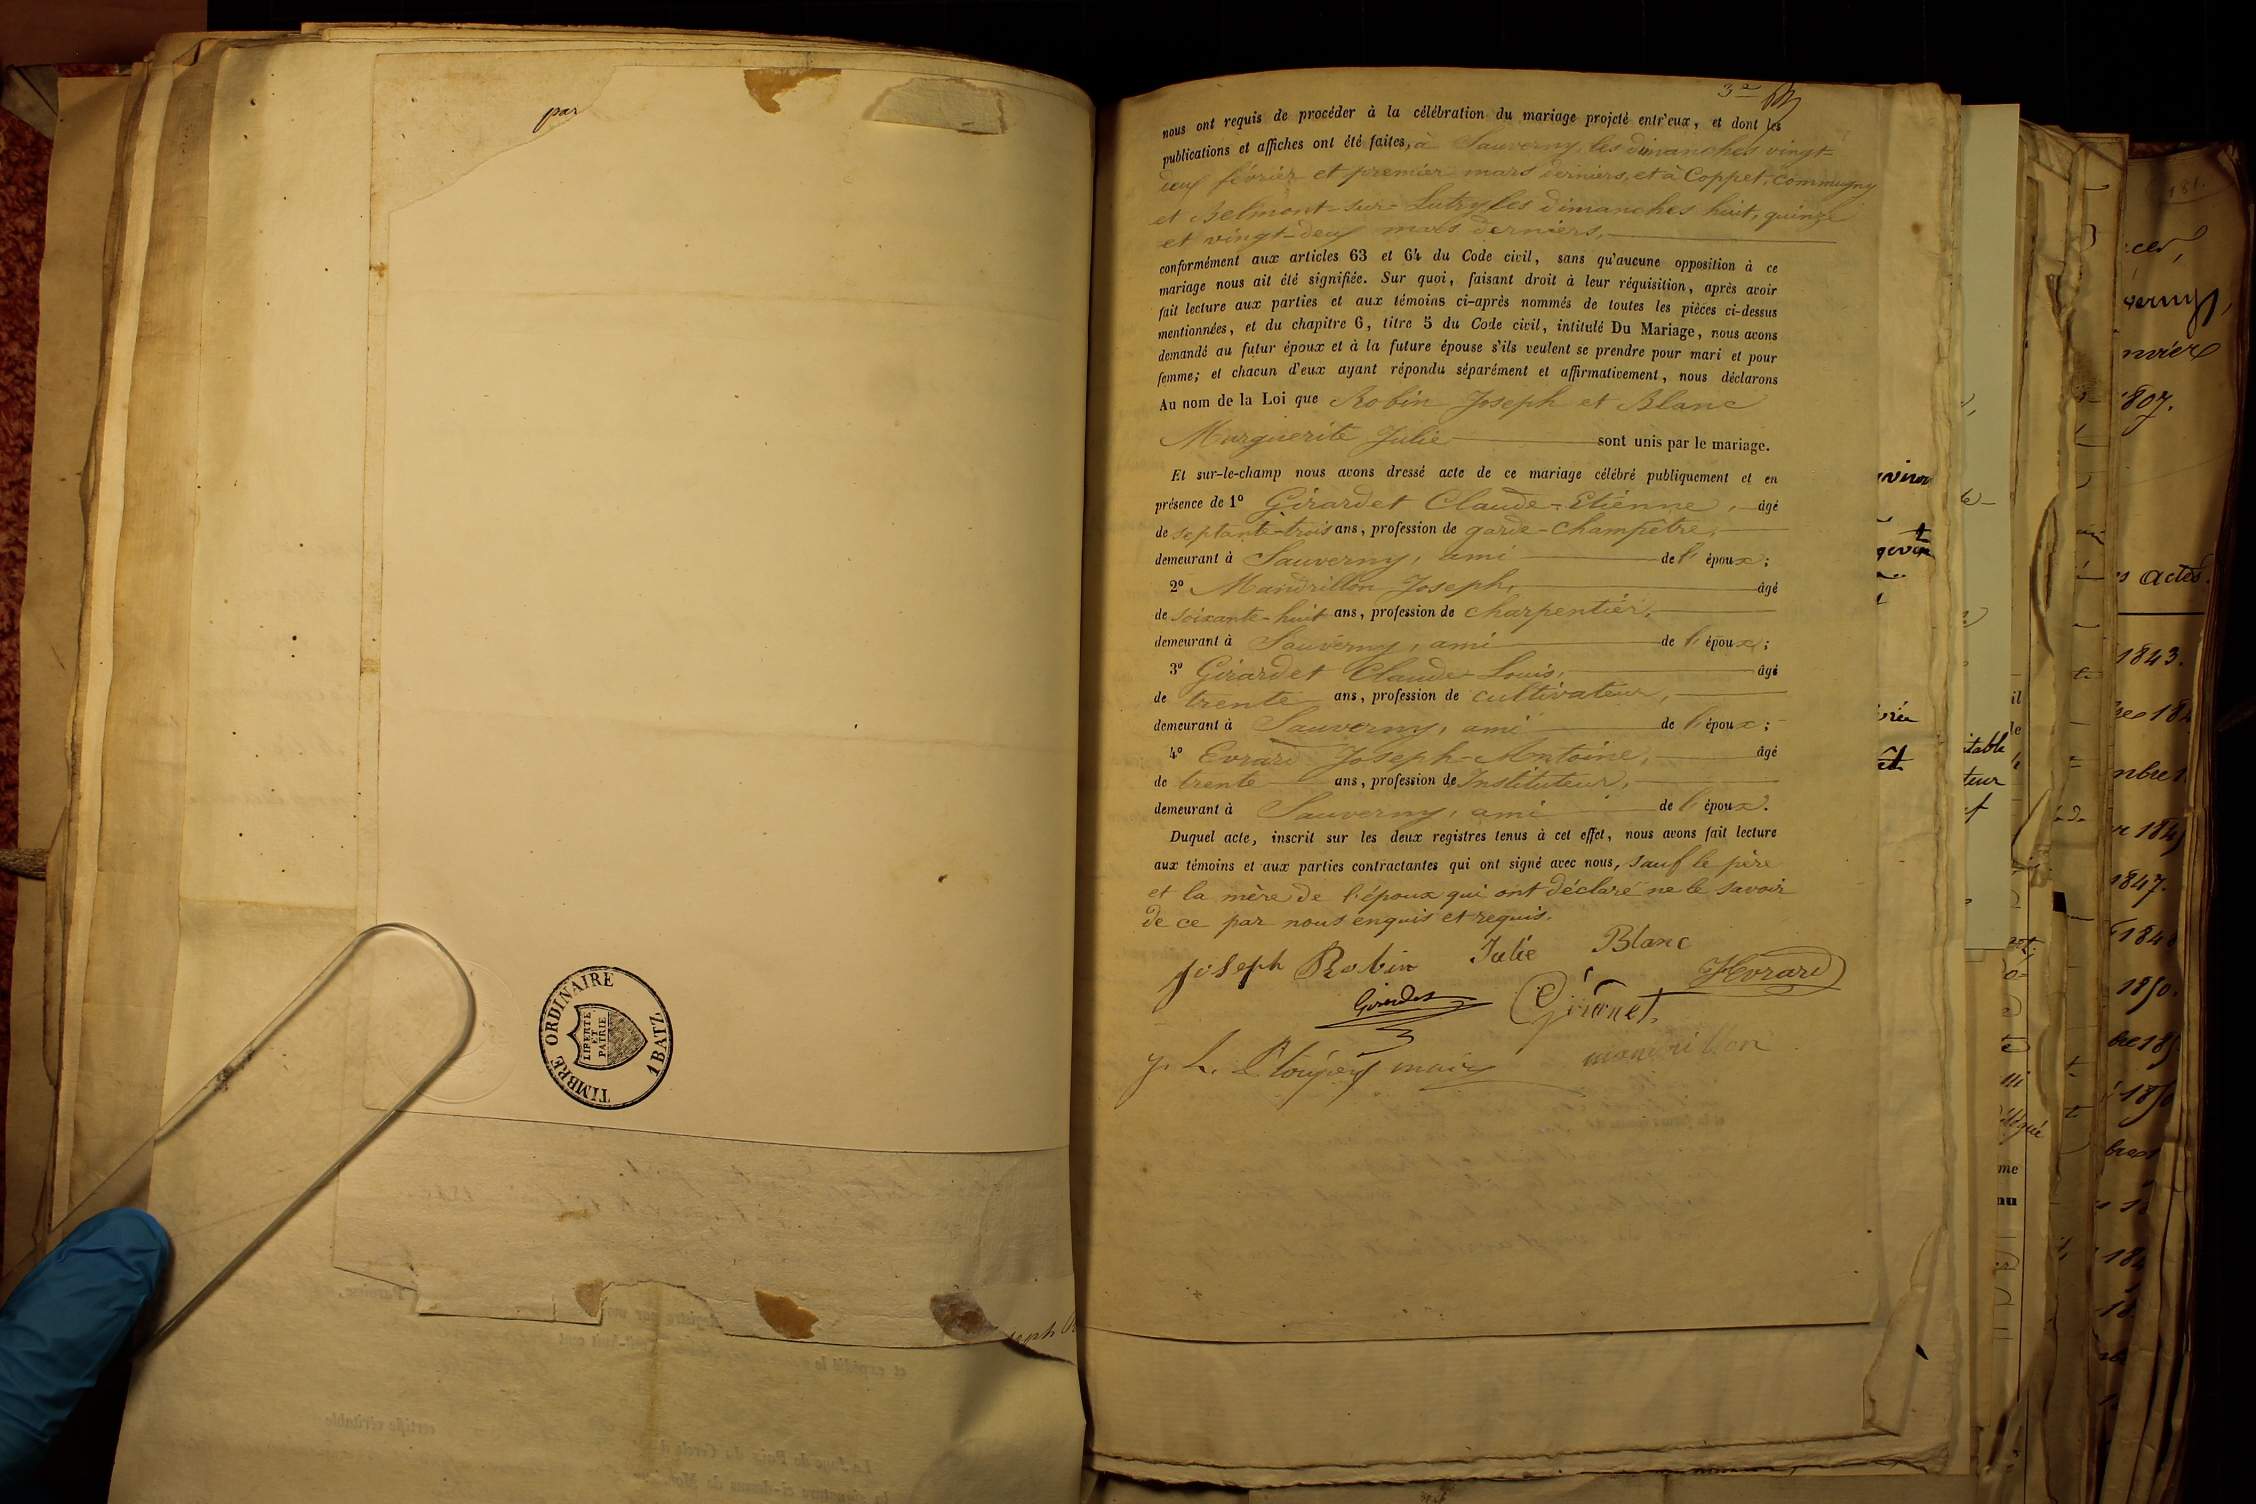 par
TIMBRE ORDINAIRE
1 BATZ
LIBERTE
ET
PATRIE
nous ont requis de procéder à la célébration du mariage projeté entr'eux, et dont les
publications et affiches ont été faites, à Sauverny, les dimanches vingt-
deux février et premier mars derniers, et à Coppet, Commugny
et Belmont-sur-Lutry les dimanches huit, quinze
et vingt-deux mars derniers,
conformément aux articles 63 et 64 du Code civil, sans qu'aucune opposition à ce
mariage nous ait été signifiée. Sur quoi, faisant droit à leur réquisition, après avoir
fait lecture aux parties et aux témoins ci-après nommés de toutes les pièces ci-dessus
mentionnées, et du chapitre 6, titre 5 du Code civil, intitulé Du Mariage, nous avons
demandé au futur époux et à la future épouse s'ils veulent se prendre pour mari et pour
femme; et chacun d'eux ayant répondu séparément et affirmativement, nous déclarons
Au nom de la Loi que Robin Joseph et Blanc
Marguerite Julie sont unis par le mariage.
Et sur-le-champ nous avons dressé acte de ce mariage célébré publiquement et en
présence de 1° Girardet Claude-Etienne, âgé
de septante-trois ans, profession de garde-champêtre,
demeurant à Sauverny, ami de l'époux;
2° Mandrillon Joseph, âgé
de soixante-huit ans, profession de charpentier,
demeurant à Sauverny, ami de l'époux;
3° Girardet Claude-Louis, âgé
de trente ans, profession de cultivateur,
demeurant à Sauverny, ami de l'époux;
4° Evrard Joseph-Antoine, âgé
de trente ans, profession de Instituteur,
demeurant à Sauverny, ami de l'époux.
Duquel acte, inscrit sur les deux registres tenus à cet effet, nous avons fait lecture
aux témoins et aux parties contractantes qui ont signé avec nous, sauf le père
et la mère de l'époux qui ont déclaré ne le savoir
de ce par nous enquis et requis.
Joseph Robin Julie Blanc
Evrard
Girardet
J. L. maire mandrillon
1807.
s actes.
1843.
1847.
1850.